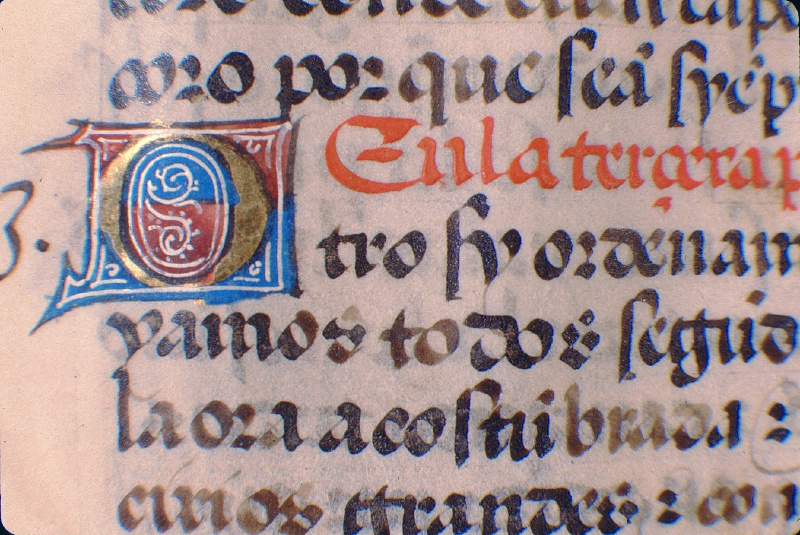 coro por que seã syẽp
En la terçera p
3.
Otro sy ordenam
vamos todos segũd
la ora acostũbrada :
cirios grandes : con